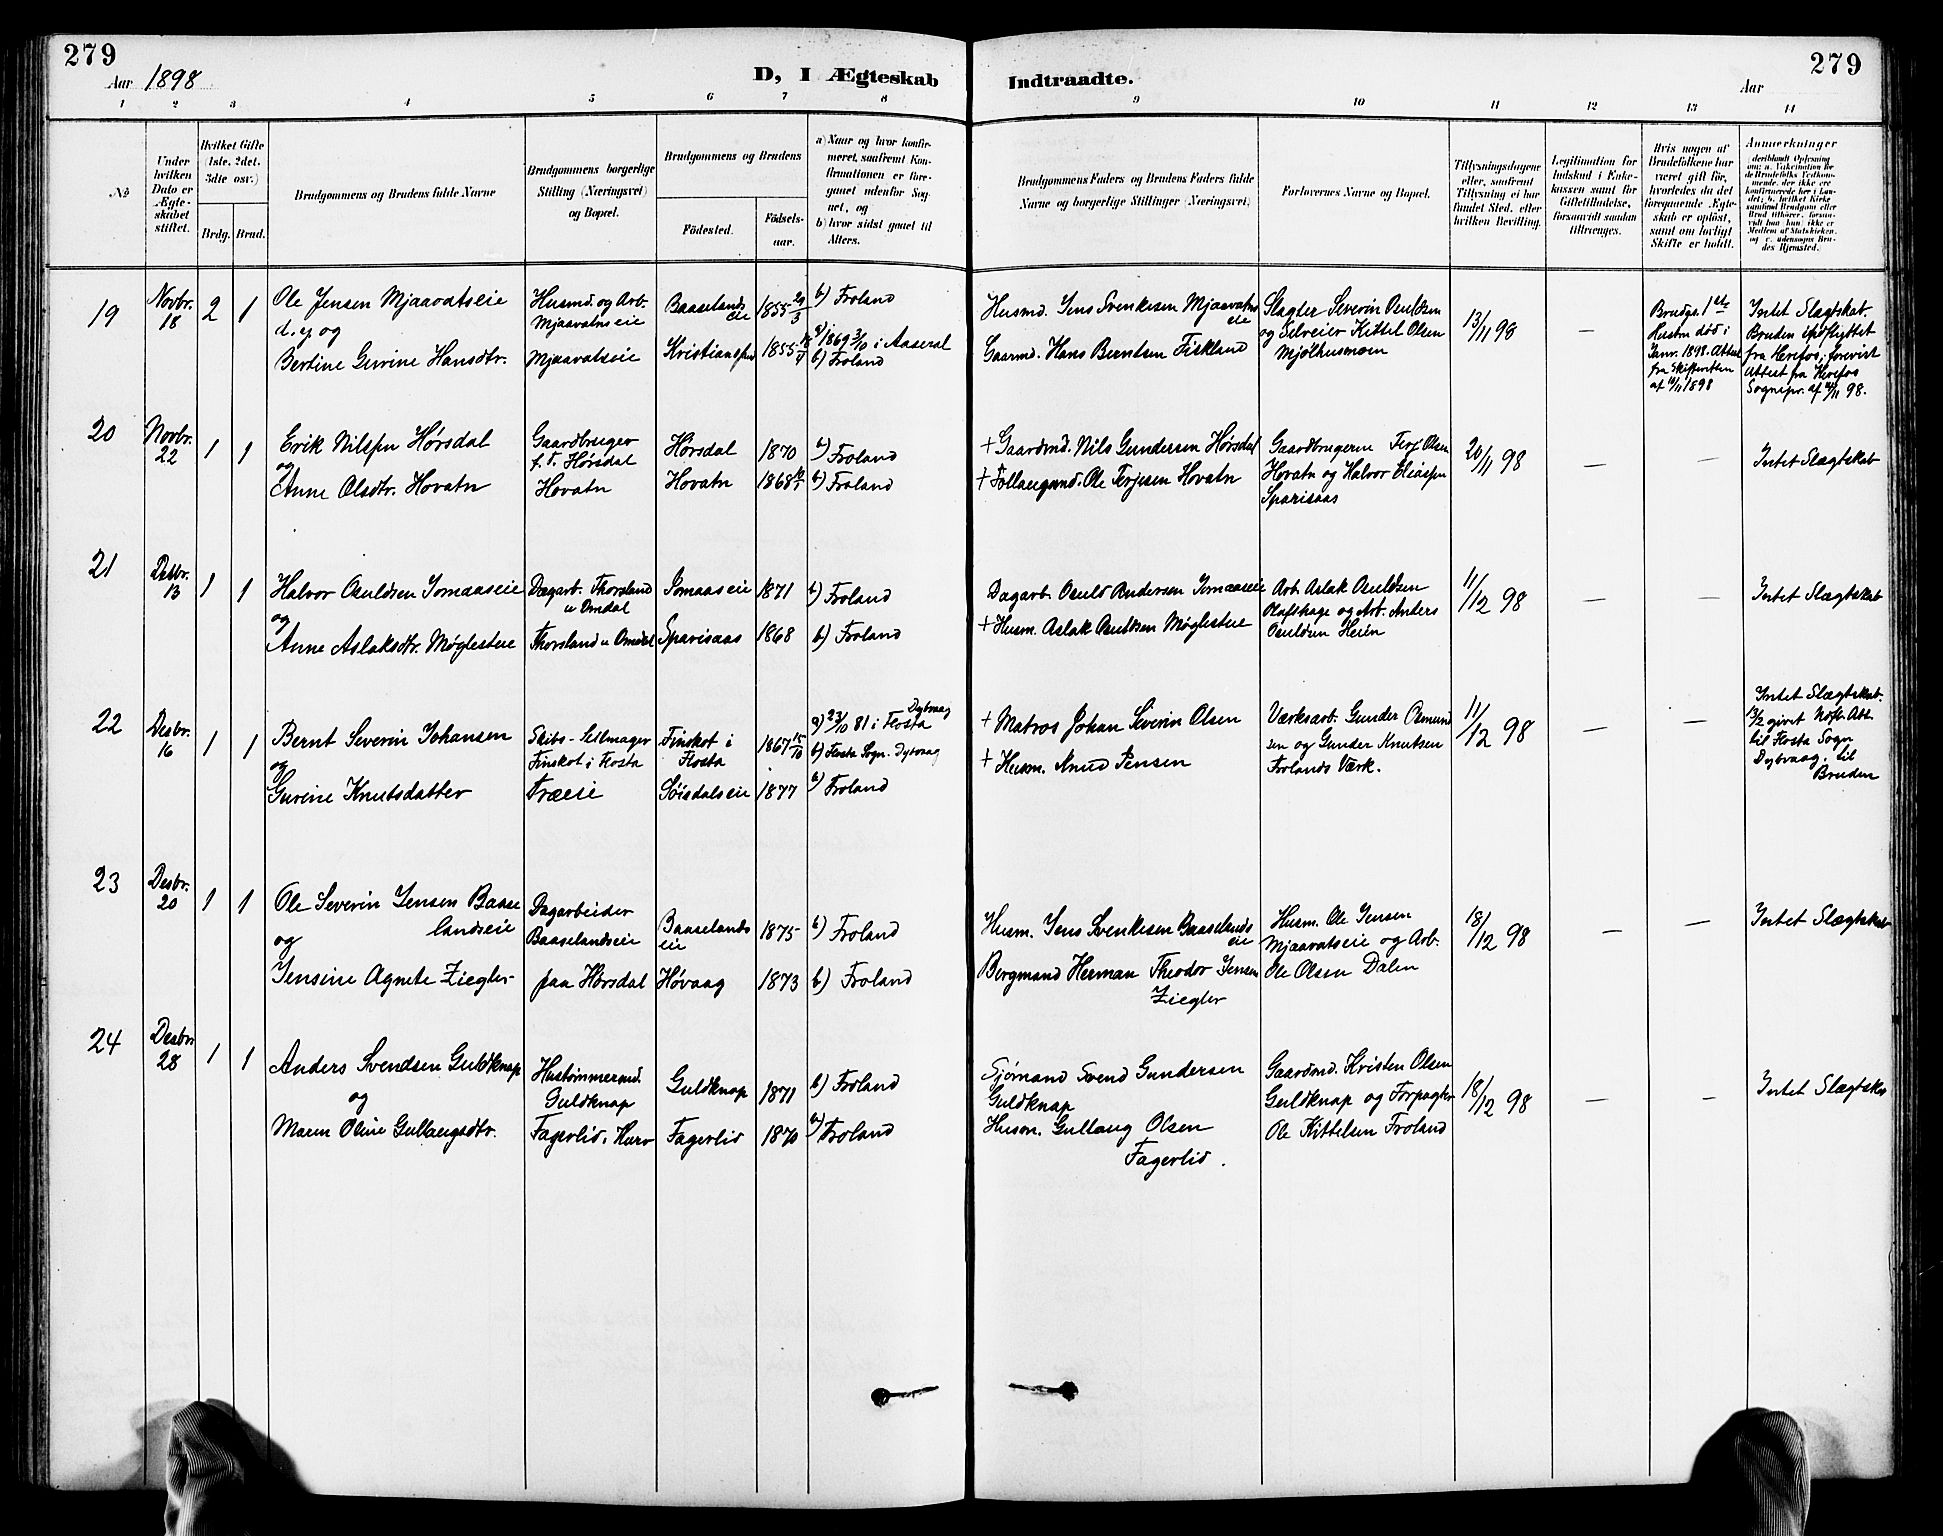 279
Aar 1898
D, I Ægteskab Indtraadte.
Aar
279
1 2 3 4 5 6 7 8 9 10 11 12 13 14
No
Under hvilken Dato er Ægteskabet stiftet.
Hvilket Gifte (1ste, 2det, 3die osv.)
Brdg. Brud.
Brudgommens og Brudens fulde Navne
Brudgommens borgerlige Stilling (Næringsvei) og Bopæl.
Brudgommens og Brudens
Fødested.
Fødselsaar.
a) Naar og hvor konfirmeret, saafremt Konfirmationen er foregaaet udenfor Sognet, og
b) hvor sidst gaaet til Alters.
Brudgommens Faders og Brudens Faders fulde Navne og borgerlige Stillinger (Næringsvei)
Forlovernes Navne og Bopæl.
Tillysningsdagene eller, saafremt Tillysning ei har fundet Sted, efter hvilken Bevilling.
Legitimation for Indskud i Enkekassen samt for Giftetilladelse, forsaavidt saadan tiltrænges.
Hvis nogen af Brudefolkene har været gift før, hvorledes da det foregaaende Ægteskab er opløst, samt om lovligt Skifte er holdt.
Anmerkninger
19
Novbr. 18
2 1
Ole Jensen Mjaavatseie
d. y og
Bertine Gurine Hansdtr.
Husmd. og Arb.
Mjaavatnseie
Mjaavatseie
Baaselandseie
Kristianssn
1855 29/3
1855
b) Froland
a) 1869 3/10 i Aaseral
b) Froland
Husmd. Jens Svenkesen Mjaavatnseie
Gaarmd. Hans Berntsen Fiskland
Slagter Severin Osuldsen
og Selveier Kittel Olsen
Mjølhusmoen
13/11 98
—
Brudg. 1ste
Hustru død i
Janr. 1898. Attest
fra Skifteretten
af 11/11 1898
Intet Slagtskab.
Bruden indflyttet
fra Herefos; forevist
Attest fra Herefos
Sognepr. af 4/11 98.
20
Novbr. 22
1 1
Erik Nilssn Hørsdal
og
Anne Olsdtr. Hovatn
Gaardbruger
f. T. Hørsdal
Hovatn
Hørsdal
Hovatn
1870
1868
a) Froland
b) Froland
+ Gaardmd. Nils Gundersen Hørsdal
+ Follaugsmd. Ole Terjesen Hovatn
Gaardbrugerne Terj Olsen
Hovatn og Halvor Eliassn
Sparisaas
20/11 98
—
—
Intet Slægtskab
21
Desbr. 13
1 1
Halvor Osuldsen Jomaaseie
og
Anne Aslaksdtr. Møglestue
Dagarb. Thorsland
u Omdal
Thorsland u Omdal
Jomaaseie
Sparisaas
1871
1868
b) Froland
b) Froland
Dagarb. Osuld Andersen Jomaaseie
+ Husm. Aslak Osuldsen Møglestue
Arb. Aslak Osuldsen
Olafshage og Arb. Anders
Osuldsen Heien
11/12 98
—
—
Intet Slægtskab
22
Desbr. 16
1 1
Bernt Severin Johansen
og
Gurine Knutsdatter
Skibs-Seilmager
Finskot i Flosta
Træeie
Finskot i
Flosta
Søisdalseie
1867 15/10
1877
a) 23/10 81 i Flosta Dybvaag
b) Flosta Sogn. Dybvaag
b) Froland
+ Matros Johan Severin Olsen
+ Husm. Knud Jensen
Værksarb. Gunder Osmund
sen og Gunder Knutsen
Frolands Værk.
11/12 98
—
—
Intet Slægtskab.
13/2 givet Att.
til Flosta Sogn
Dybvaag. til
Bruden
23
Desbr. 20
1 1
Ole Severin Jensen Baase
landseie
og
Jensine Agnete Ziegler
Dagarbeider
Baaselandseie
paa Hørsdal
Baaselandseie
Høvaag
1875
1873
b) Froland
b) Froland
Husm. Jens Svenkesen Baaselandseie
Bergmand Herman Theodor Jensen
Ziegler
Husm. Ole Jensen
Mjaavatseie og Arb.
Ole Olsen Dalen
18/12 98
—
—
Intet Slægtskab
24
Desbr. 28
1 1
Anders Svendsen Guldknap
og
Maren Oline Gullaugsdtr.
Hustømmermd.
Guldknap
Fagerlid.
Guldknap
Fagerlid
1871
1870
b) Froland
a) Froland
Sjømand Svend Gundersen
Guldknap
Husm. Gullaug Olsen
Fagerlid.
Gaardmd. Kristen Olsen
Guldknap og Forpagter
Ole Kittelsen Froland
18/12 98
—
—
Intet Slægtskab